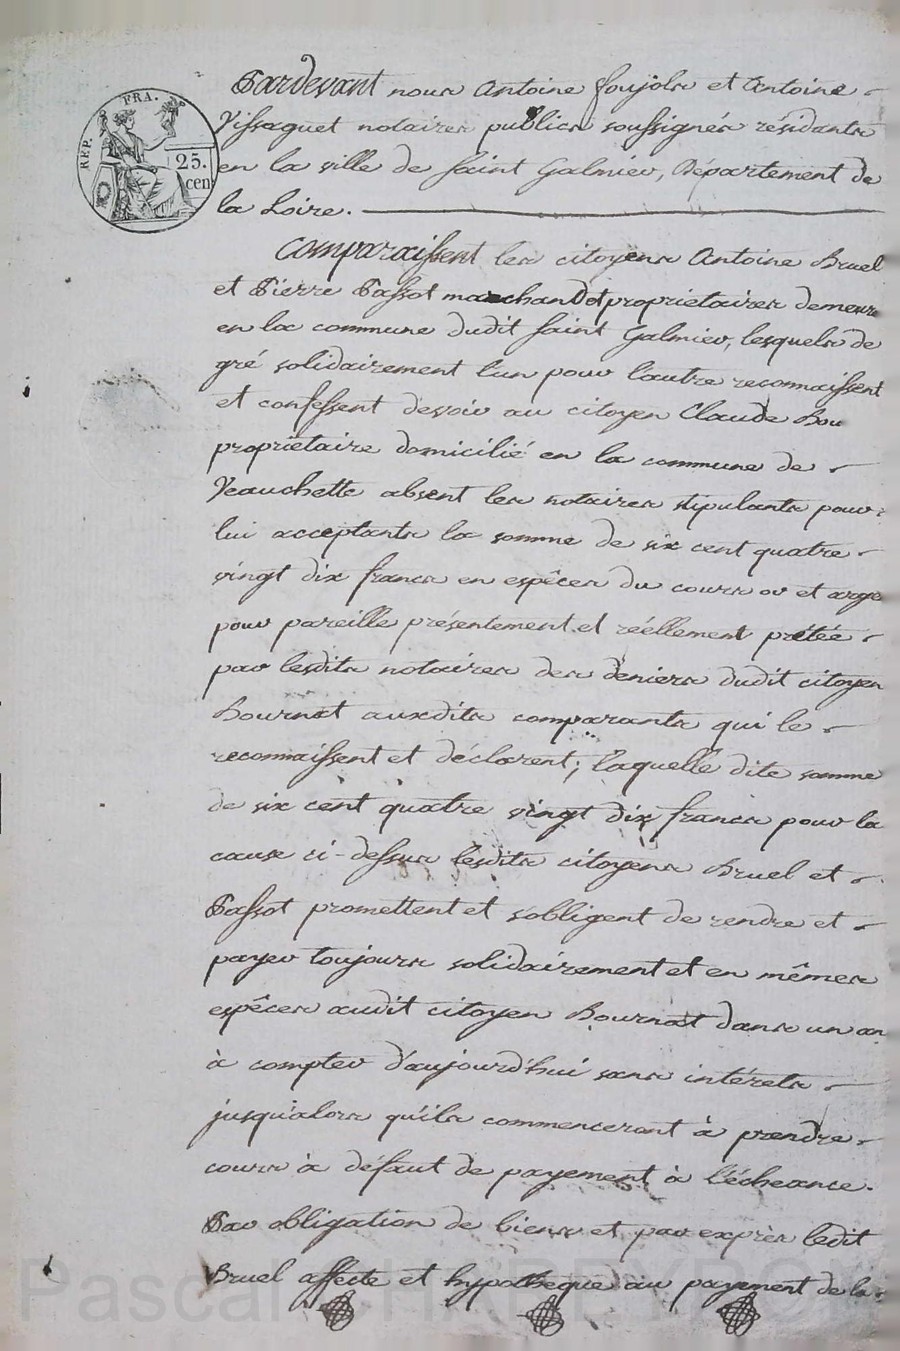 REP. FRA.
25.
cen
Pardevant nous Antoine Foujols et Antoine
Vissaguet notaires publics soussignés résidants
en la ville de Saint Galmier, Département de
la Loire.
Comparaissent les citoyens Antoine Bruel
et Pierre Passot marchand et proprietaires demeure
en la commune dudit Saint Galmier, lesquels de
gré solidairement l'un pour l'autre reconnaissent
et confessent devoir au citoyen Claude Bou
propriétaire domicilié en la commune de
Veauchette absent les notaires stipulants pour
lui acceptants la somme de six cent quatre
vingt dix francs en espêces du cours or et arge
pour pareille présentement et réellement prêtée
par lesdits notaires des deniers dudit citoyen
Bournat auxdits comparants qui le
reconnaissent et déclarent; laquelle dite somme
de six cent quatre vingt dix francs pour la
cause ci-dessus lesdits citoyens Bruel et
Passot promettent et s'obligent de rendre et
payer toujours solidairement et en mêmes
espêces audit citoyen Bournat dans un an
à compter d'aujourd'hui sans intérets
jusqu'alors qu'ils commenceront à prendre
cours à défaut de payement à l'écheance.
Par obligation de biens et par exprès ledit
Bruel affecte et hypothèque au payement de la
Pascal CHABEYRON